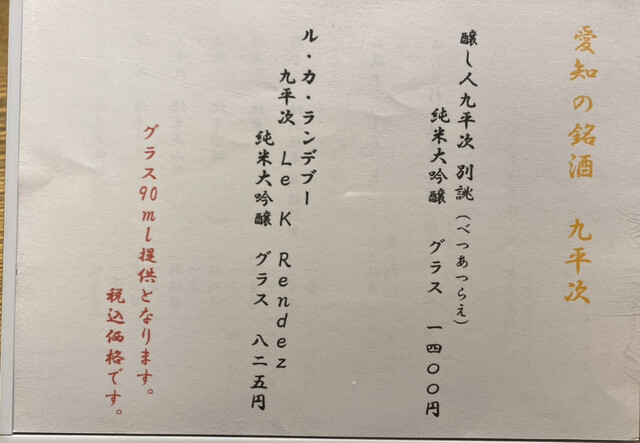 愛知の銘酒 九平次
醸し人九平次 別誂(べつあつらえ)
純米大吟醸 グラス 一四〇〇円
ル・カ・ランデブー
九平次 Le K Rendez
純米大吟醸 グラス 八二五円
グラス90ml提供となります。
税込価格です。